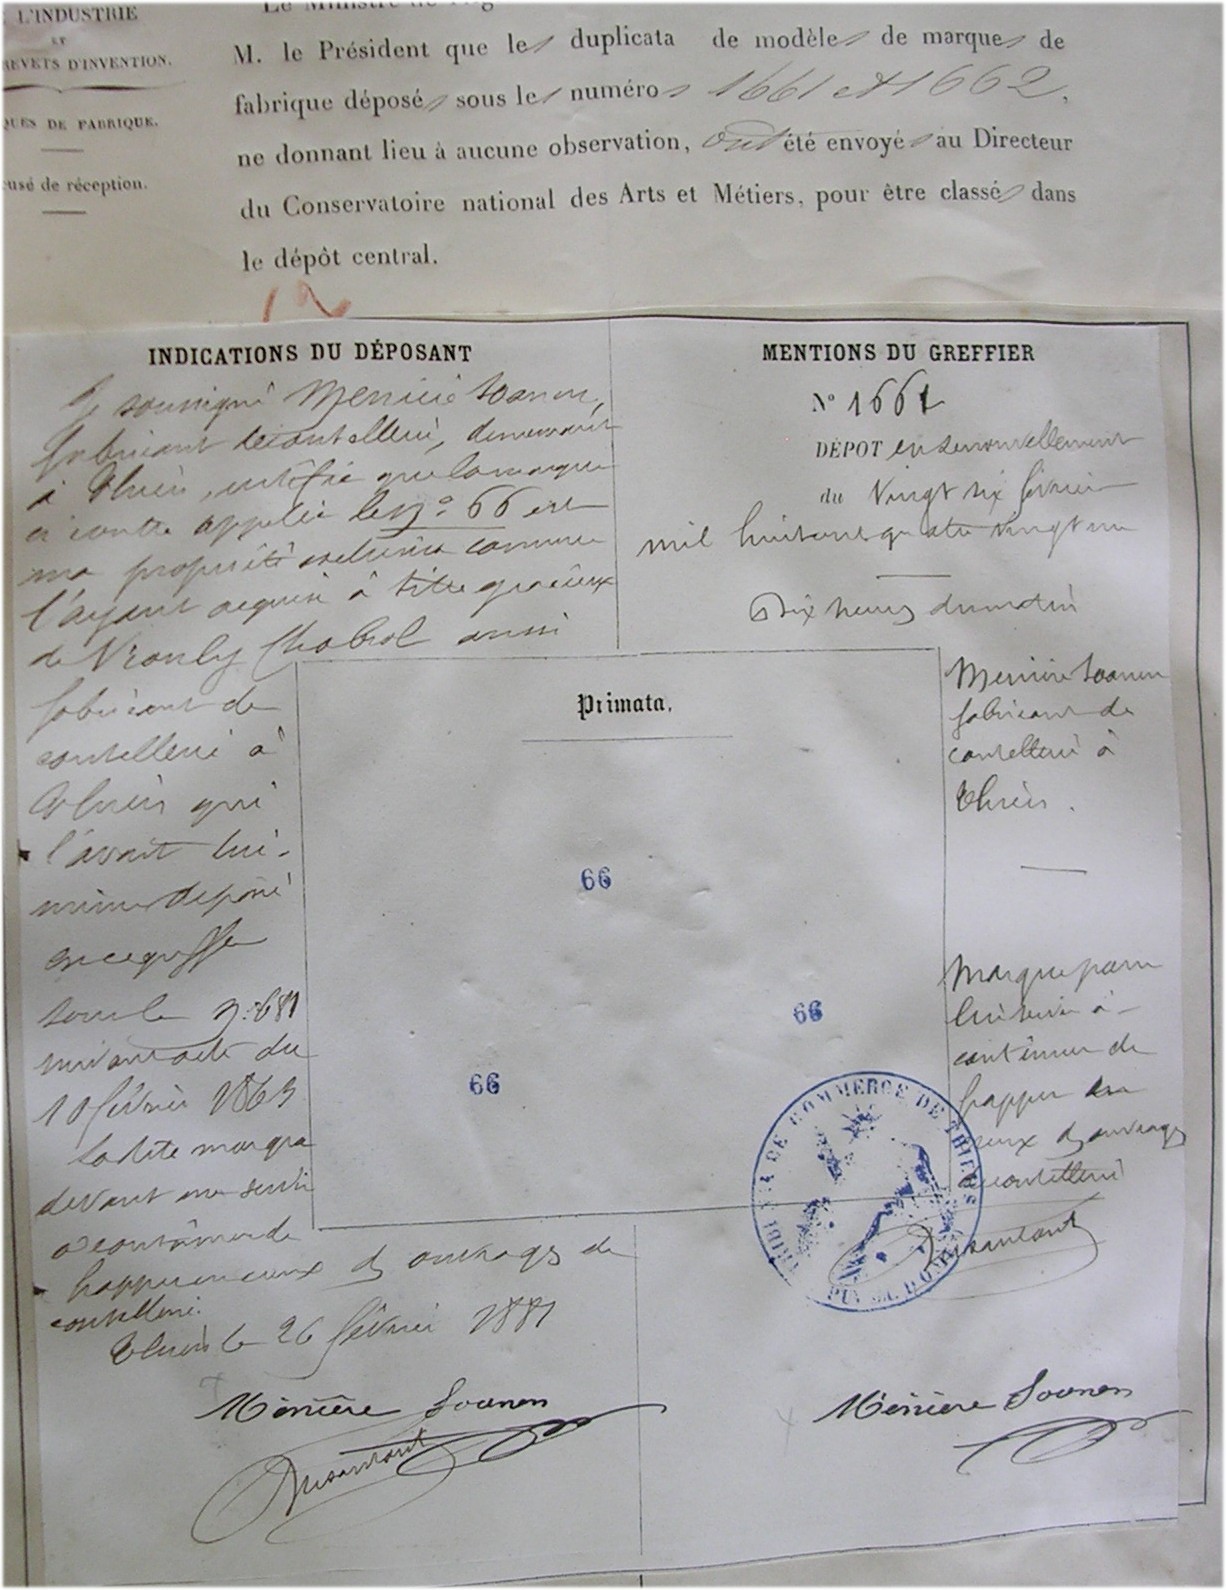 L'INDUSTRIE
ET
BREVETS D'INVENTION.
QUES DE FABRIQUE.
cusé de réception.
Le Ministre de l'Ag
M. le Président que les duplicata de modèles de marques de
fabrique déposés sous les numéros 1661 et 1662,
ne donnant lieu à aucune observation, ont été envoyés au Directeur
du Conservatoire national des Arts et Métiers, pour être classés dans
le dépôt central.
12
INDICATIONS DU DÉPOSANT
Je soussigné Menière Soanen,
fabricant de coutellerie, demeurant
à Thiers, certifie que la marque
ci contre appelée le no 66 est
ma propriété exclusive comme
l'ayant acquise à titre gracieux
de Chabrol aussi
fabricant de
coutellerie à
Thiers qui
l'avait lui-
même déposé
en ce greffe
sous le no 681
suivant acte du
10 février 1865
La dite marque
devant me servir
à continuer de
frapper en creux ouvrages de
coutellerie.
Thiers le 26 février 1881
Ménière Soanen
Dusantout
MENTIONS DU GREFFIER
No 1661
DÉPOT en renouvellement
du Vingt six février
mil huit cent quatre vingt un
Dix heures du matin
Menière Soanen
fabricant de
coutellerie à
Thiers.
Marque pour
lui servir à
continuer de
frapper en
creux ouvrages
de coutellerie
Dusantout
Ménière Soanen
Primata.
66
66
66
TRIBUNAL DE COMMERCE DE THIERS
PUY DE DOME